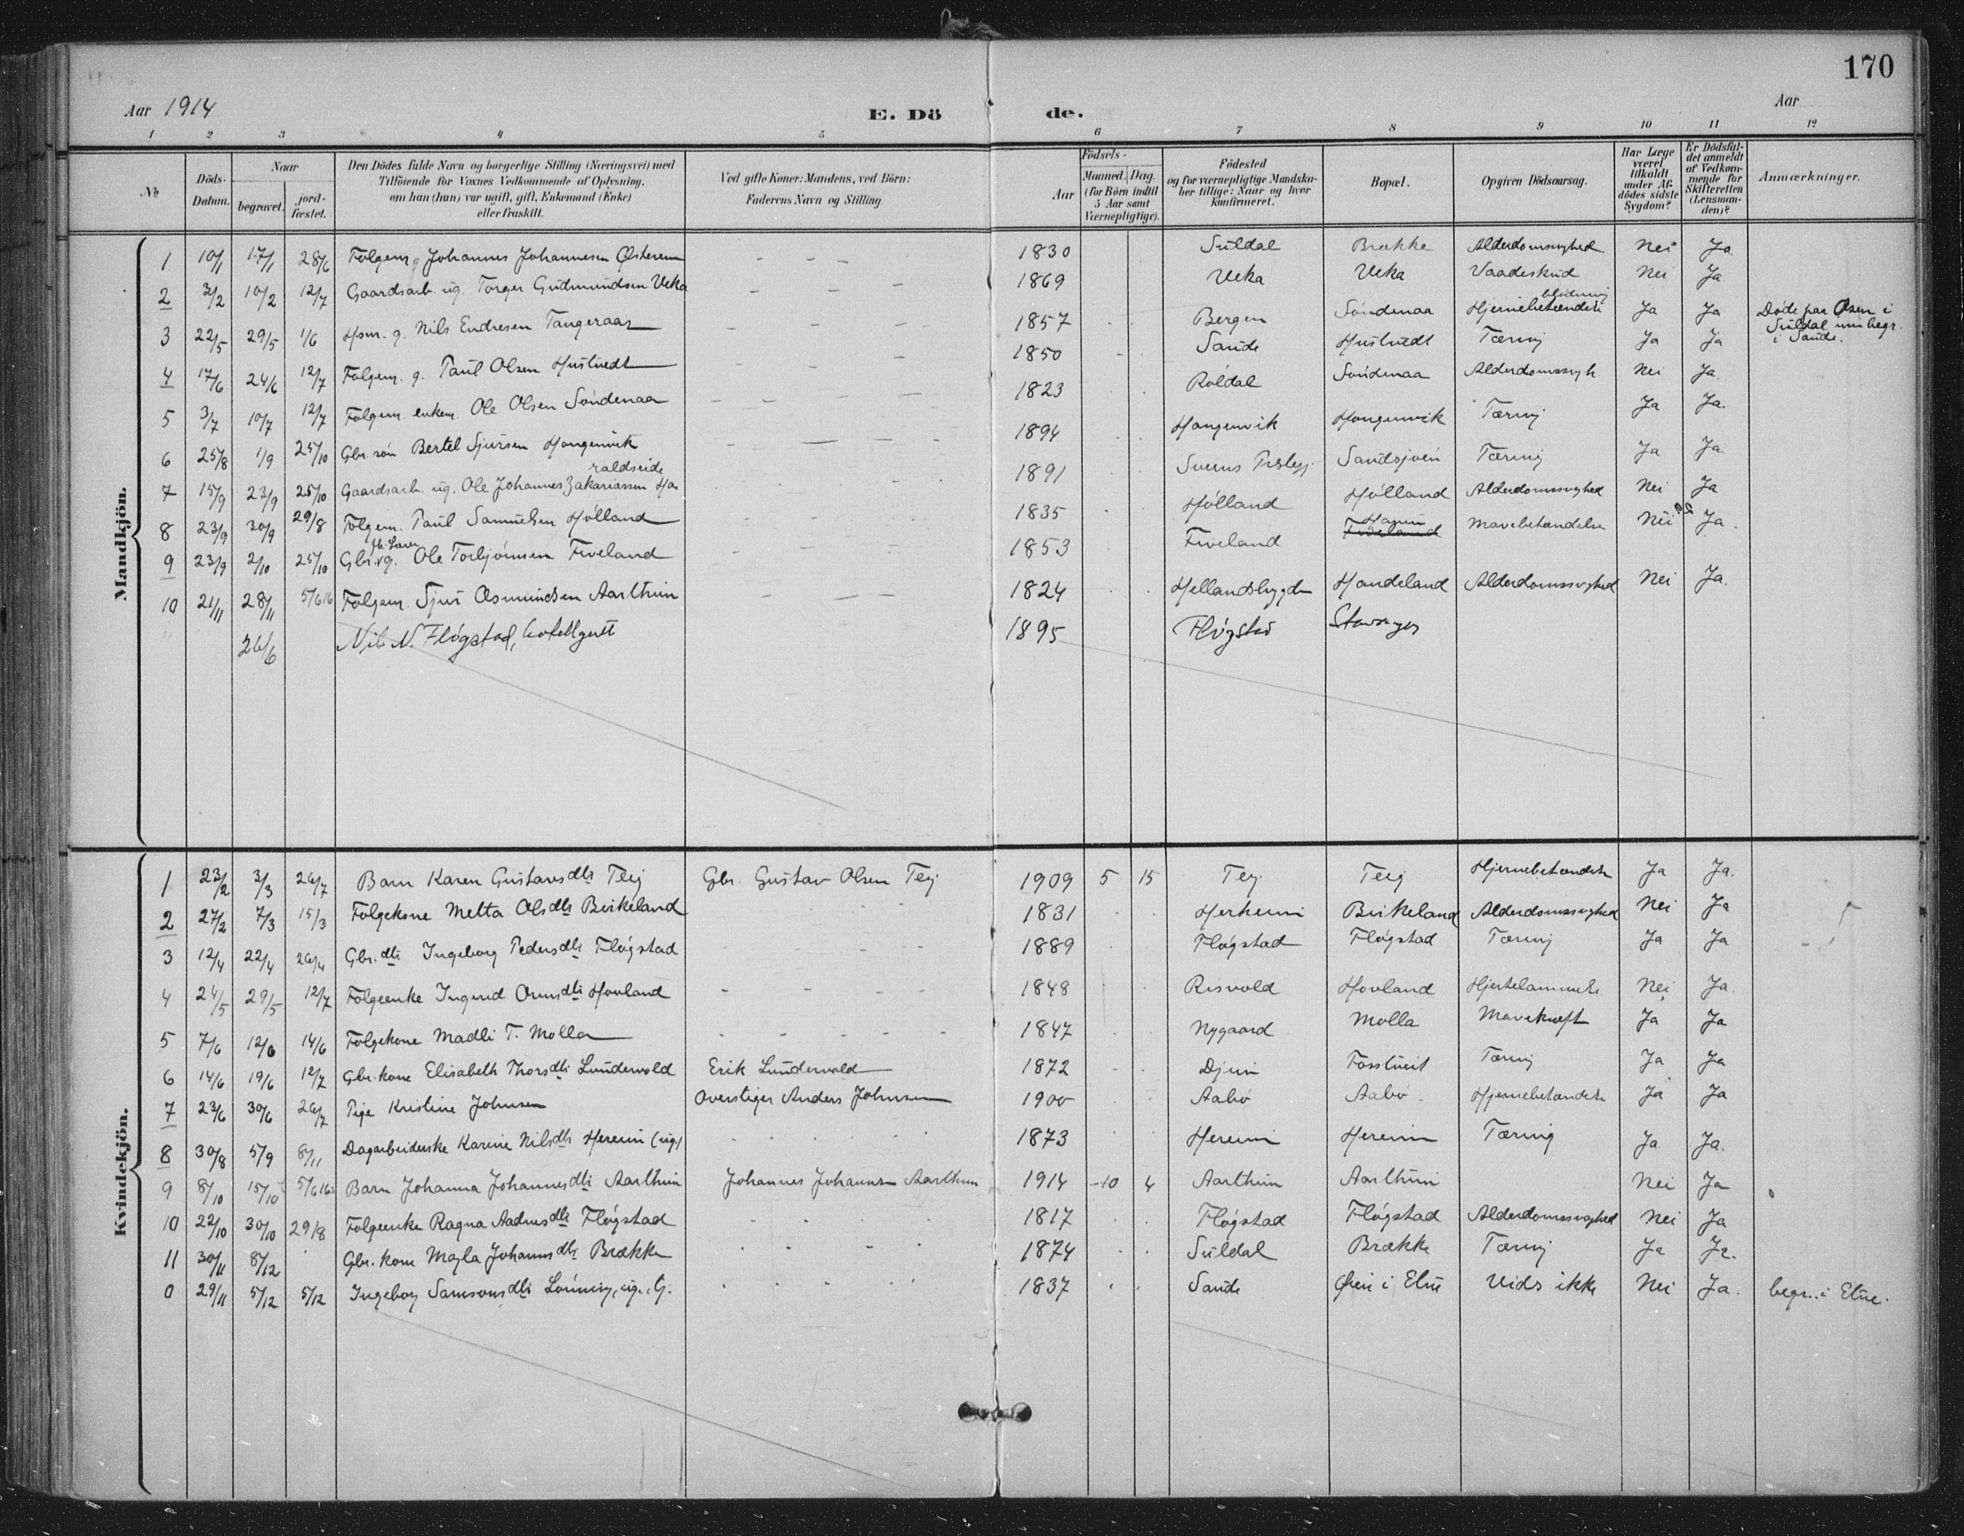 170
Aar 1914 E. Dö de. Aar
1 2 3 4 5 6 7 8 9 10 11 12
No
Döds-Datum.
Naar begravet. jord-fæstet.
Den Dödes fulde Navn og borgerlige Stilling (Næringsvei) med Tilföiende for Voxnes Vedkommende af Oplysning, om han (hun) var ugift, gift, Enkemand (Enke) eller fraskilt.
Ved gifte Koner: Mandens, ved Börn: Faderens Navn og Stilling
Födsels-
Aar Maaned. Dag. (for Börn indtil 5 Aar samt Værnepligtige).
Födested og for værnepligtige Mandskaber tillige: Naar og hvor konfirmeret.
Bopæl.
Opgiven Dödsaarsag.
Har Læge været tilkaldt under Afdödes sidste Sygdom?
Er Dödsfaldet anmeldt af Vedkommende for Skifteretten (Lensmanden)?
Anmærkninger.
Mandkjön.
1 10/1 17/1 28/6 Folgem g Johannes Johannesen Østerem 1830 Suldal Brække Alderdomssvghed Nei Ja
2 3/2 10/2 12/7 Gaardsarb. ug. Torger Gudmundsen Veka 1869 Veka Veka Vaadeskud Nei Ja
3 22/5 29/5 1/6 Hsm. g. Nils Endresen Tangeraas 1857 Bergen Søndenaa Hjernebetændelse blødning Ja Ja Døde paa Øsen i Suldal men begr. i Sande.
4 17/6 24/6 12/7 Folgem. g. Paul Olsen Hustvedt 1850 Sande Hustvedt Tæring Ja Ja
5 3/7 10/7 12/7 Folgem. enkem. Ole Olsen Søndenaa 1823 Røldal Søndenaa Alderdomssvgh Nei Ja.
6 25/8 1/9 25/10 Gbr søn Bertel Sjursen Hangenvik 1894 Hangenvik Hangenvik Tæring Ja Ja.
7 15/9 23/9 25/10 Gaardsarb. ug. Ole Johannes Zakariassen Haraldseide 1891 Sandsjøen Tæring Ja Ja
8 23/9 30/9 29/8 Folgem. Paul Samuelsen Hølland 1835 Hølland Hølland Alderdomssvghed Nei Ja
9 23/9 2/10 25/10 Gbr. ug. Ole Torbjørnsen Fiveland 1853 Fiveland Fiveland Mavebetændelse Nei Ja.
10 21/11 28/11 5/6 16 Folgem. Sjur Osmundsen Aarthun 1824 Hellandsbygden Handeland Alderdomssvghed Nei Ja.
26/6 Nils N. Fløgstad, hotellgutt 1895 Fløgstad Stavanger
Kvindekjön.
1 23/2 3/3 26/7 Barn Karen Gustavsdtr Teig Gbr. Gustav Olsen Teig 1909 5 15 Teig Teig Hjernebetændelse Ja Ja.
2 27/2 7/3 15/3 Folgekone Metta Olsdtr Birkeland 1831 Herheim Birkeland Alderdomssvghed Nei Ja
3 12/4 22/4 26/4 Gbr. dtr Ingeborg Pedersdtr Fløgstad 1889 Fløgstad Fløgstad Tæring Ja Ja
4 24/5 29/5 12/7 Folgeenke Ingerid Ormsdtr Hovland 1848 Risvold Hovland Hjertelammelse Nei Ja
5 7/6 12/6 14/6 Folgekone Madli T. Molla 1847 Nygaard Molla Mavekræft Ja Ja
6 14/6 19/6 12/7 Gbr. kone Elisabeth Thorsdtr Lundervold Erik Lundervold 1872 Djuv Fosstveit Tæring Ja Ja
7 23/6 30/6 26/7 Pige Kristine Johnsen Overstiger Anders Johnsen 1900 Aabø Aabø. Hjernebetændelse Ja Ja
8 30/8 5/9 8/11 Dagarbeiderske Karine Nilsdtr Hereim (ug.) 1873 Hereim Hereim Tæring Ja Ja.
9 8/10 15/10 5/6 16 Barn Johanna Johannesdtr Aarthun Johannes Johannsen Aarthun 1914 10 4 Aarthun Aarthun Nei Ja
10 22/10 30/10 29/8 Folgeenke Ragna Aadnesdtr Fløgstad 1817 Fløgstad Fløgstad Alderdomssvghed Nei Ja
11 30/11 8/12 Gbr. kone Magla Johannsdtr Brække 1874 Suldal Brække Tæring Ja Ja.
0 29/11 5/12 5/12 Ingeborg Samsonsdtr Lønning, ug. 1837 Sande Øen i Etne Vids ikke Nei Ja. begr. i Etne.